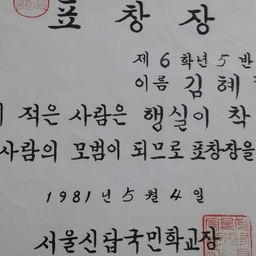 표창장
제 6 학년 5 반
이름 김 혜
적은 사람은 행실이 착
사람의 모범이 되므로 표창장을
1981 년 5 월 4 일
서울신답국민학교장